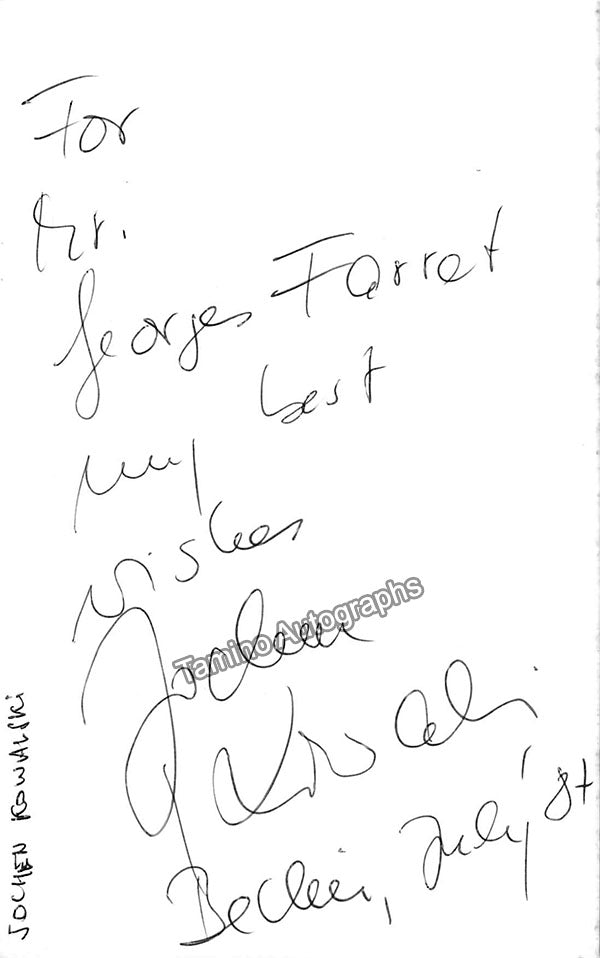 For
Mr.
Georges Farret
my best
wishes
Jochen
Kowalski
Berlin, July '87
JOCHEN KOWALSKI
Tamino Autographs